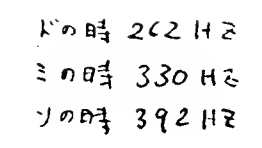 ドの時 262 Hz
ミの時 330 Hz
ソの時 392 Hz